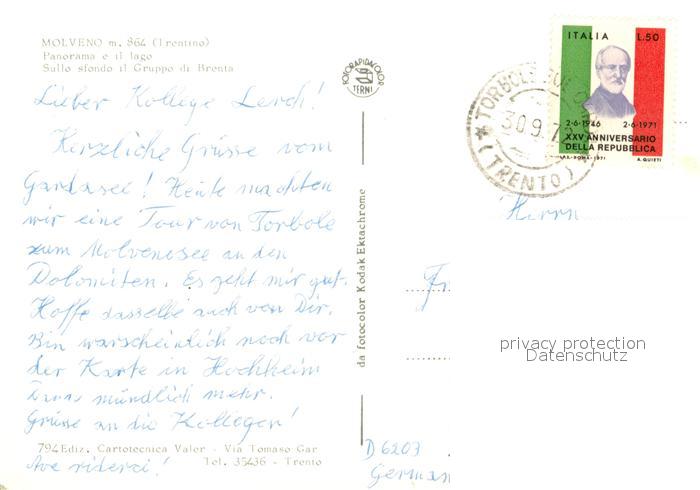 MOLVENO m. 864 (Trentino)
Panorama e il lago
Sullo sfondo il Gruppo di Brenta
FOTORAPIDACOLOR
TERNI
ITALIA L.50
2-6-1946 2-6-1971
XXV ANNIVERSARIO
DELLA REPUBBLICA
I.P.S.-ROMA-1971 A. QUIETI
TORBOLE SUL
30.9.7
(TRENTO)
Lieber Kollege Lerch!
Herzliche Grüsse vom
Gardasee! Heute machten
wir eine Tour von Torbole
zum Molvenosee an den
Dolomiten. Es geht mir gut.
Hoffe dasselbe auch von Dir.
Bin warscheinlich noch vor
der Karte in Hochheim
Dann mündlich mehr.
Grüsse an die Kollegen!
Ave riderci!
794 Ediz. Cartotecnica Valer - Via Tomaso Gar
Tel. 35436 - Trento
da fotocolor Kodak Ektachrome
Herrn
Fr
privacy protection
Datenschutz
D 6203
German